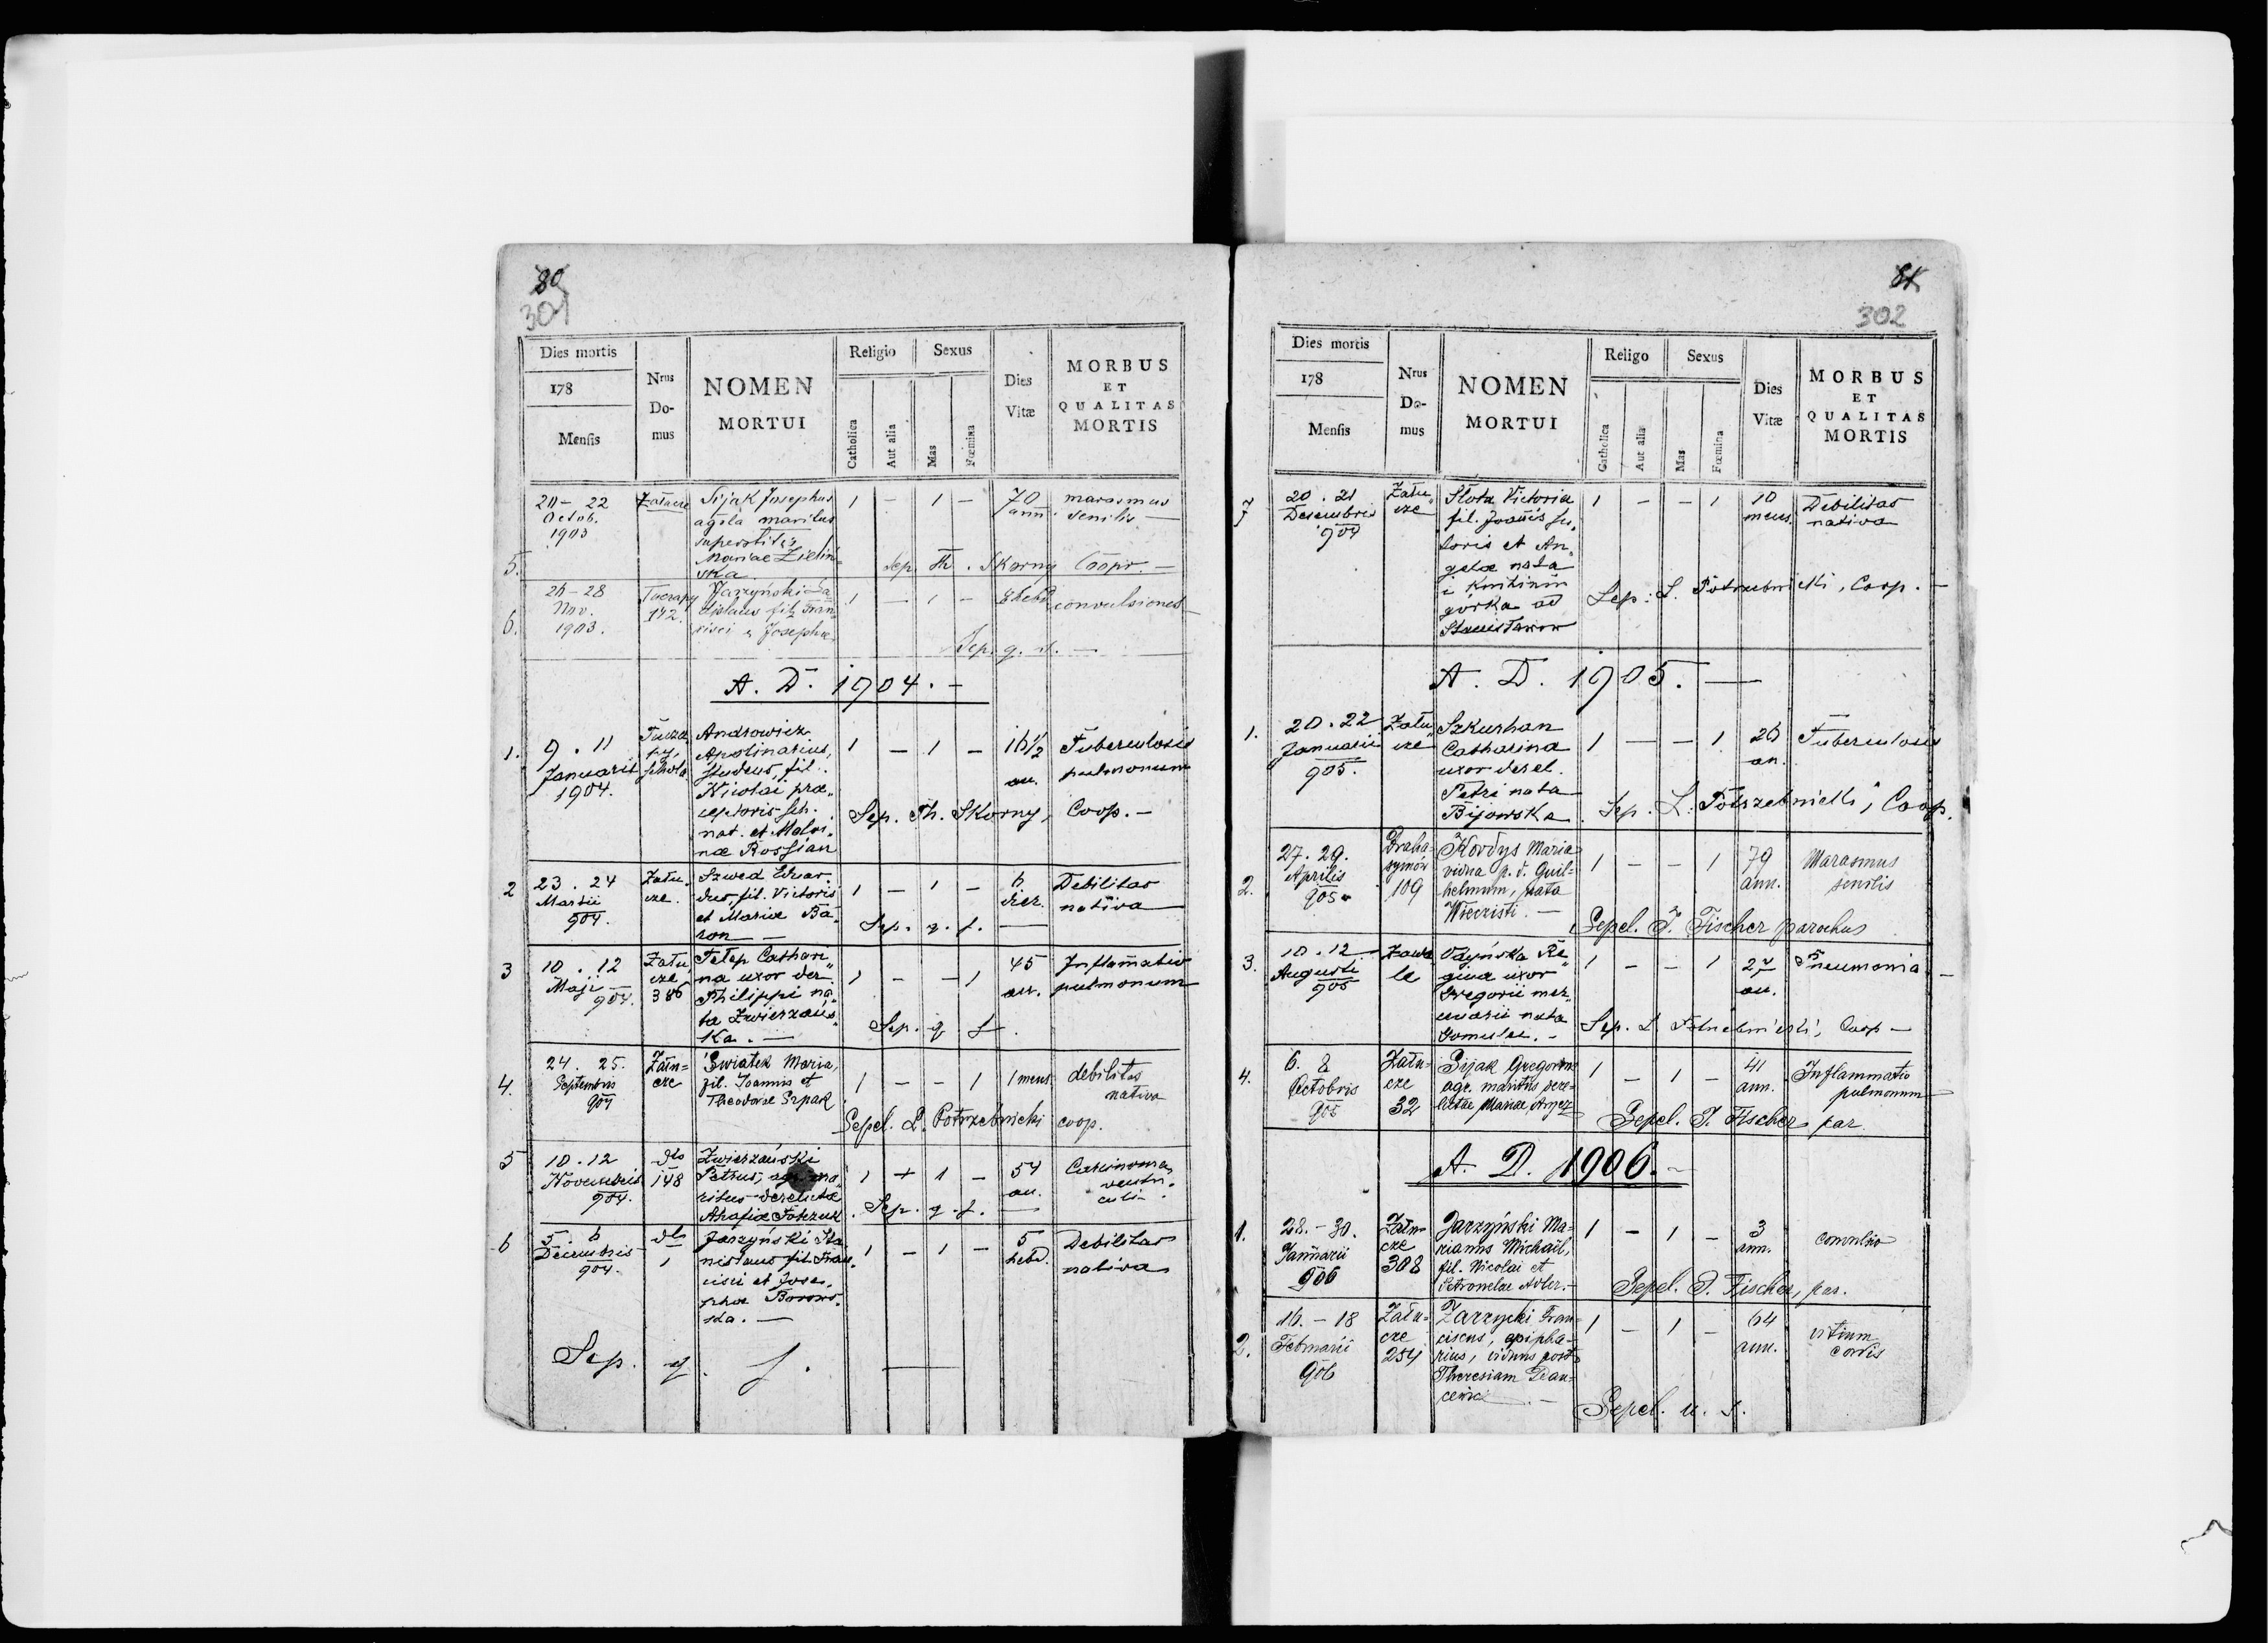 80
301
Dies mortis
178
Mensis
Nrus
Do-
mus
NOMEN
MORTUI
Religio
Catholica
Aut alia
Sexus
Mas
Fœmina
Dies
Vitæ
MORBUS
ET
QUALITAS
MORTIS
5.
20 - 22
Octob.
1903
Załucze
Sijak Josephus
agcla maritus
superstitis
Mariae Zielin=
ska
1 - 1 -
70
ann.
marasmus
senilis —
Sep. Th. Skorny Coopr. —
6.
26 - 28
Nov.
1903.
Tuczapy
142.
Jarzyński La
dislaus fil. Fran
cisci & Josephae
1 - 1 -
8 hebd.
convulsiones
Sep. q. s. —
A. D. 1904. -
1.
9. 11
Januarii
1904.
Tucza
py,
schola
Androwicz
Apolinarius,
studens, fil.
Nicolai præ„
ceptoris sch.
nat. et Malvi„
næ Rossian
1 - 1 -
16 1/2
an.
Tuberculosis
pulmonum
Sep. Th. Skorny, Coop. -
2
23. 24
Martii
904.
Zału„
cze.
Szwed Eduar„
dus, fil. Victoris
et Mariæ Ba„
ron —
1 - 1 -
6
dier.
Debilitas
nativa
Sep. q. s. —
3
10. 12
Maji
904.
Zału„
cze
386
Telep Cathari„
na uxor der.
Philippi na„
ta Zwierzańs„
ka. —
1 - - 1
45
an.
Inflamatio
pulmonum
Sep. q. s.
4.
24. 25.
Septembris
904
Zału=
cze
Swiatek Maria,
fil. Joannis et
Theodorae Szpak
1 - - 1
1 mens.
debilitas
nativa
Sepel. L. Potrzebnicki coop.
5
10. 12
Novembris
904.
dto
148
Zwierzański
Petrus, agr. ma„
ritus derelictæ
Ahafiæ Totczuk
1 + 1 -
54
an.
Carcinoma
ventri„
culi -
Sep. q. s. —
6
5. 6
Decembris
904.
dto
1
Jarzyński Sta
nislaus fil. Fran„
cisci et Jose„
phæ Borows„
ka. —
1 - 1 -
5
hebd.
Debilitas
nativa
Sep. q. s. —
81
302
Dies mortis
178
Mensis
Nrus
Do-
mus
NOMEN
MORTUI
Religo
Catholica
Aut alia
Sexus
Mas
Fœmina
Dies
Vitæ
MORBUS
ET
QUALITAS
MORTIS
7
20. 21
Decembris
904
Zału„
cze
Słota Victoria
fil. Joannis su„
toris et An„
gelæ nata
górka ad
Stanisławow
1 - - 1
10
mens.
Debilitas
nativa
Sep. L. Potrzebnicki, Coop. -
A. D. 1905. —
1.
20. 22
Januarii
905.
Zału
cze
Szkurhan
Catharina
uxor derel.
Petri nata
Bijowska
1 - - 1
26
an.
Tuberculosis
Sep. L. Potrzebnicki, Coop.
2.
27. 29.
Aprilis
905
Draha=
symów
109
Kordys Maria
vidua p. d. Guil=
helmum, nata
1 - - 1
79
ann.
Marasmus
senilis
Sepel. J. Fischer parochus
3.
10. 12
Augusti
905
Zawa
le
Odyńska Re„
gina uxor
Gregorii mer„
cenarii nata
1 - - 1
27
an.
Pneumonia -
Sep. L. Potrzebnicki, Coop -
4.
6. 8
Octobris
905
Zału=
cze
32
Sijak Gregorius
agr. maritus dere=
lictae Mariae,
1 - 1 -
41
ann.
Inflammatio
pulmonum
Sepel. J. Fischer par.
A. D. 1906. -
1.
28. - 30.
Januarii
906
Zału=
cze
308
Jarzyński Ma=
rianus Michaël,
fil. Nicolai et
Petronelae Adler. -
1 - 1 -
3
ann.
convulsio
Sepel. J. Fischer, par.
2.
16. - 18
Februarii
906
Zału=
cze
254
Zarzycki Fran=
ciscus,
viduus post
Theresiam
1 - 1 -
64
ann.
vitium
cordis
Sepel. u. s.